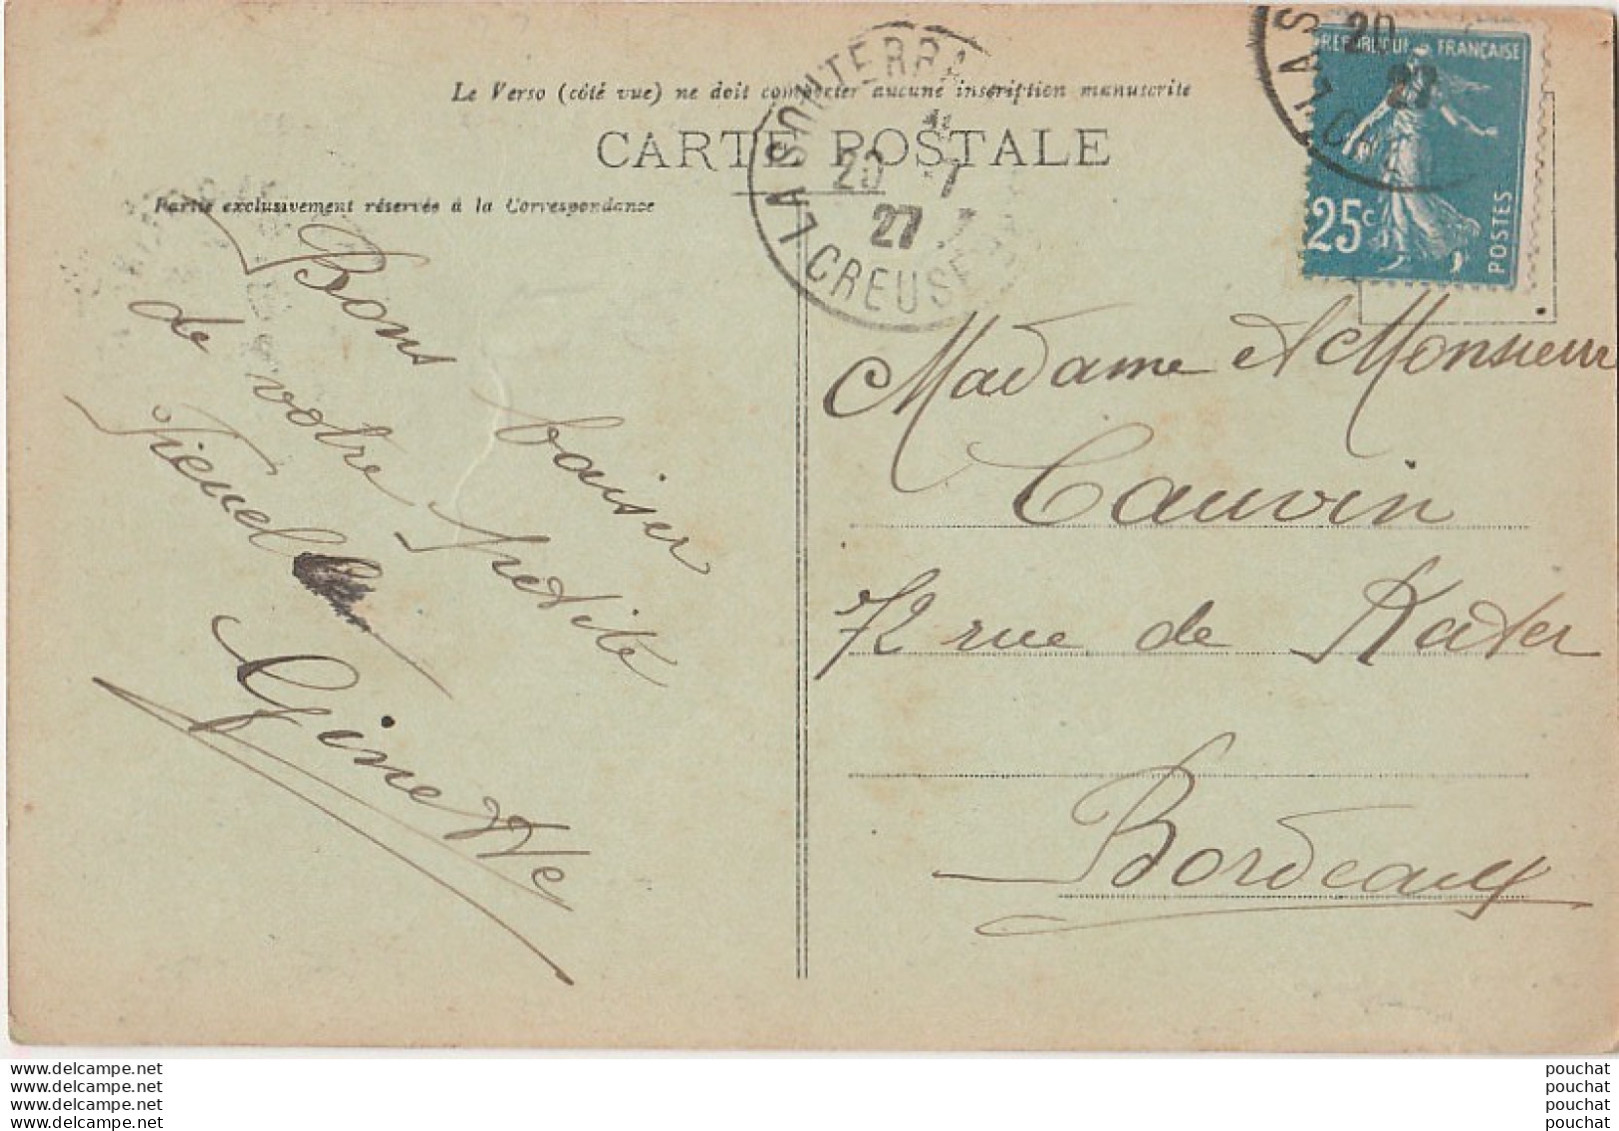 Le Verso (côté vue) ne doit comporter aucune inscription manuscrite
CARTE POSTALE
Partie exclusivement réservée à la Correspondance
LA SOUTERRA
20 7
27
CREUSE
LA S
20
27
CR
REPUBLIQUE FRANÇAISE
25c
POSTES
Bons baiser
de votre petite
Ginette
Madame et Monsieur
Cauvin
72 rue de Kater
Bordeaux
www.delcampe.net
www.delcampe.net
www.delcampe.net
www.delcampe.net
pouchat
pouchat
pouchat
pouchat